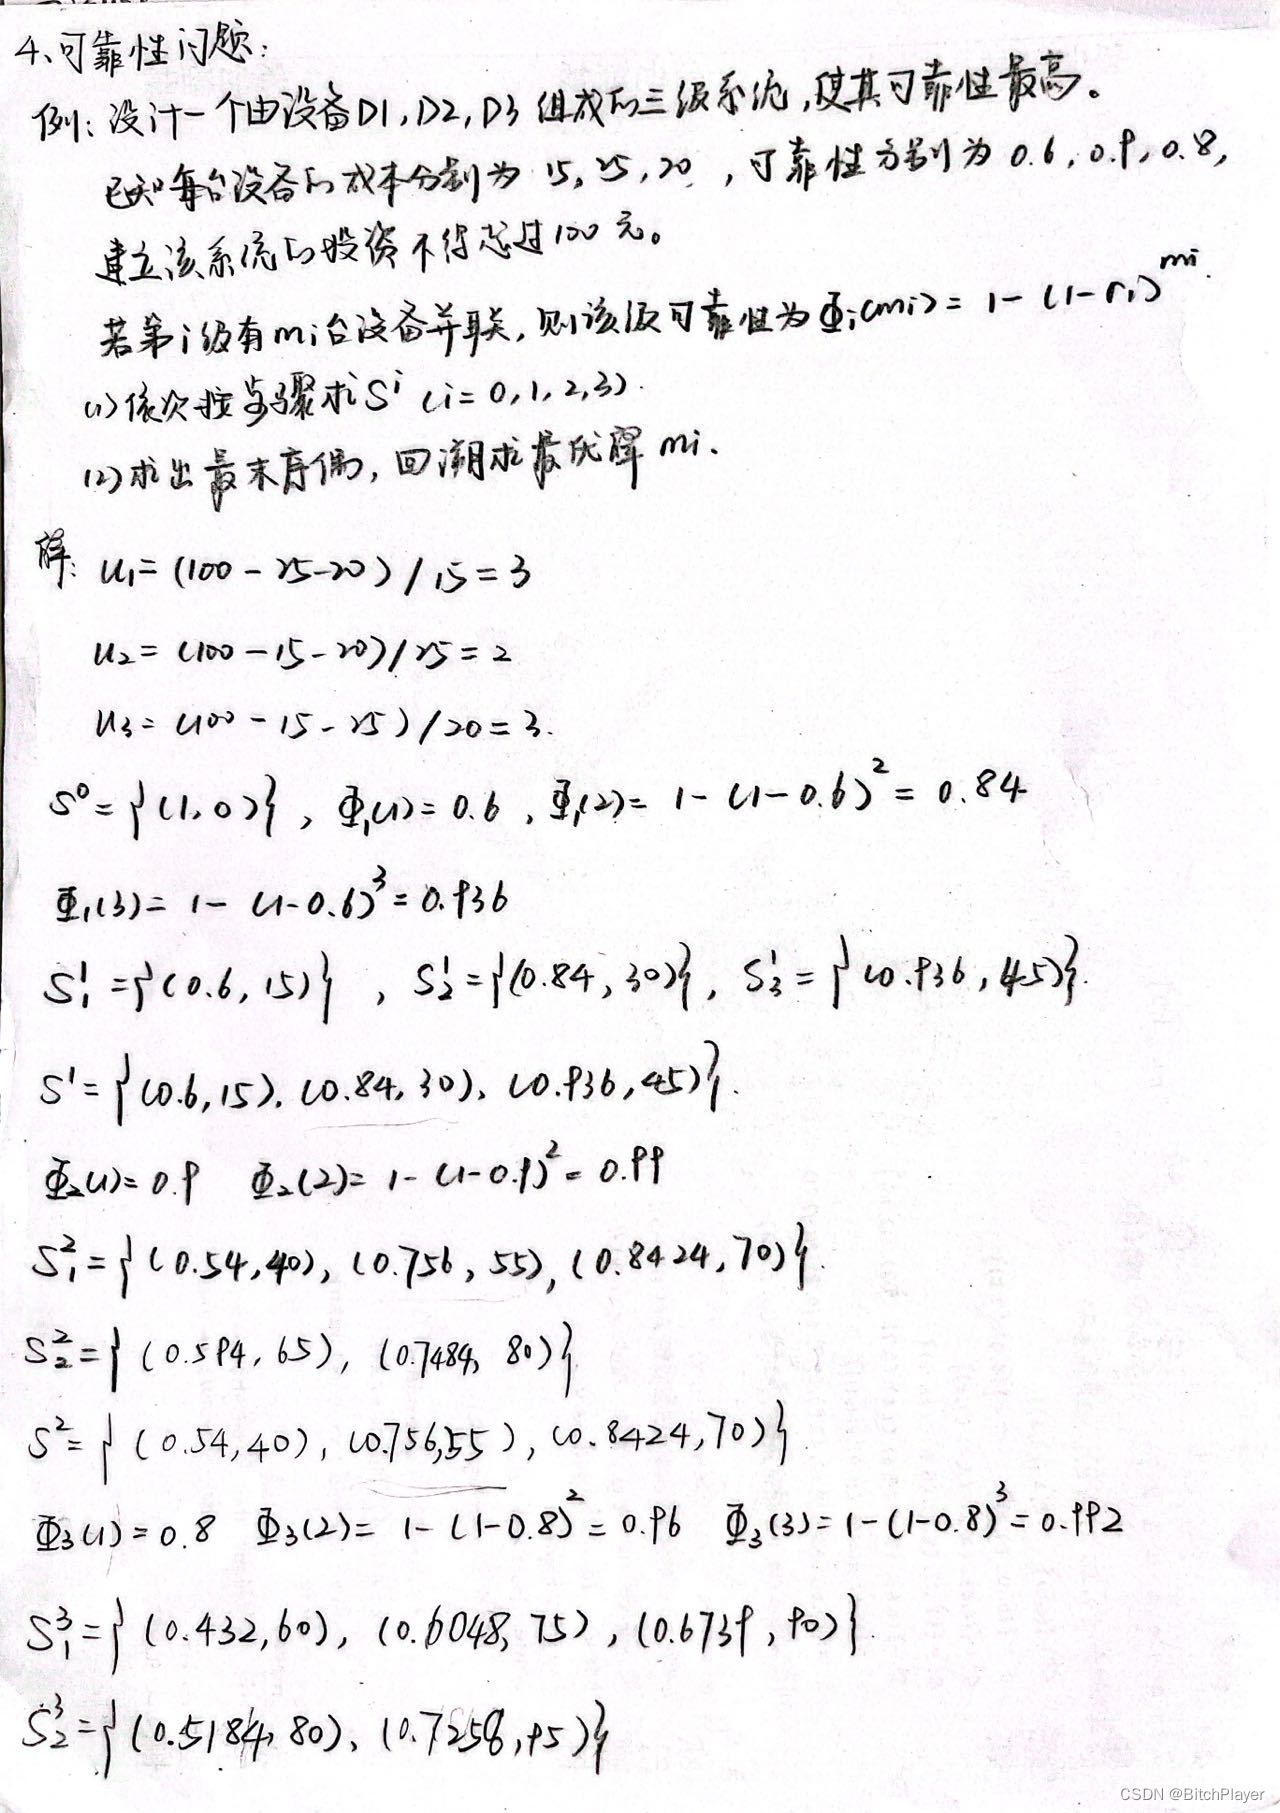 4、可靠性问题:
例: 设计一个由设备D1, D2, D3 组成的三级系统, 使其可靠性最高。
已知每台设备的成本分别为 15, 25, 20 , 可靠性分别为 0.6, 0.9, 0.8,
建立该系统的投资不得超过100元。
若第i级有mi台设备并联, 则该级可靠性为Φi(mi) = 1 - (1-ri)^mi.
(1)依次按步骤求S^i (i= 0, 1, 2, 3).
(2)求出最末序偶, 回溯求最优解 mi.
解: u₁= (100 - 25-20) / 15 = 3
u₂= (100-15-20)/25 = 2
u₃= (100 - 15 - 25) /20 = 3.
S⁰ = {(1, 0)} , Φ₁(1)= 0.6 , Φ₁(2)= 1-(1-0.6)² = 0.84
Φ₁(3)= 1- (1-0.6)³= 0.936
S₁¹ ={(0.6, 15)} , S₂¹={(0.84, 30)}, S₃¹ = {(0.936, 45)}.
S¹={(0.6, 15), (0.84, 30), (0.936, 45)}.
Φ₂(1)= 0.9 Φ₂(2)= 1- (1-0.9)² = 0.99
S₁²={(0.54, 40), (0.756, 55), (0.8424, 70)}.
S₂²={(0.594, 65), (0.7484, 80)}
S²={(0.54, 40), (0.756,55), (0.8424, 70)}
Φ₃(1)= 0.8 Φ₃(2)= 1-(1-0.8)² = 0.96 Φ₃(3)= 1-(1-0.8)³= 0.992
S₁³={(0.432, 60), (0.6048, 75), (0.6739, 90)}.
S₂³={(0.5184, 80), (0.7258, 95)}
CSDN @BitchPlayer